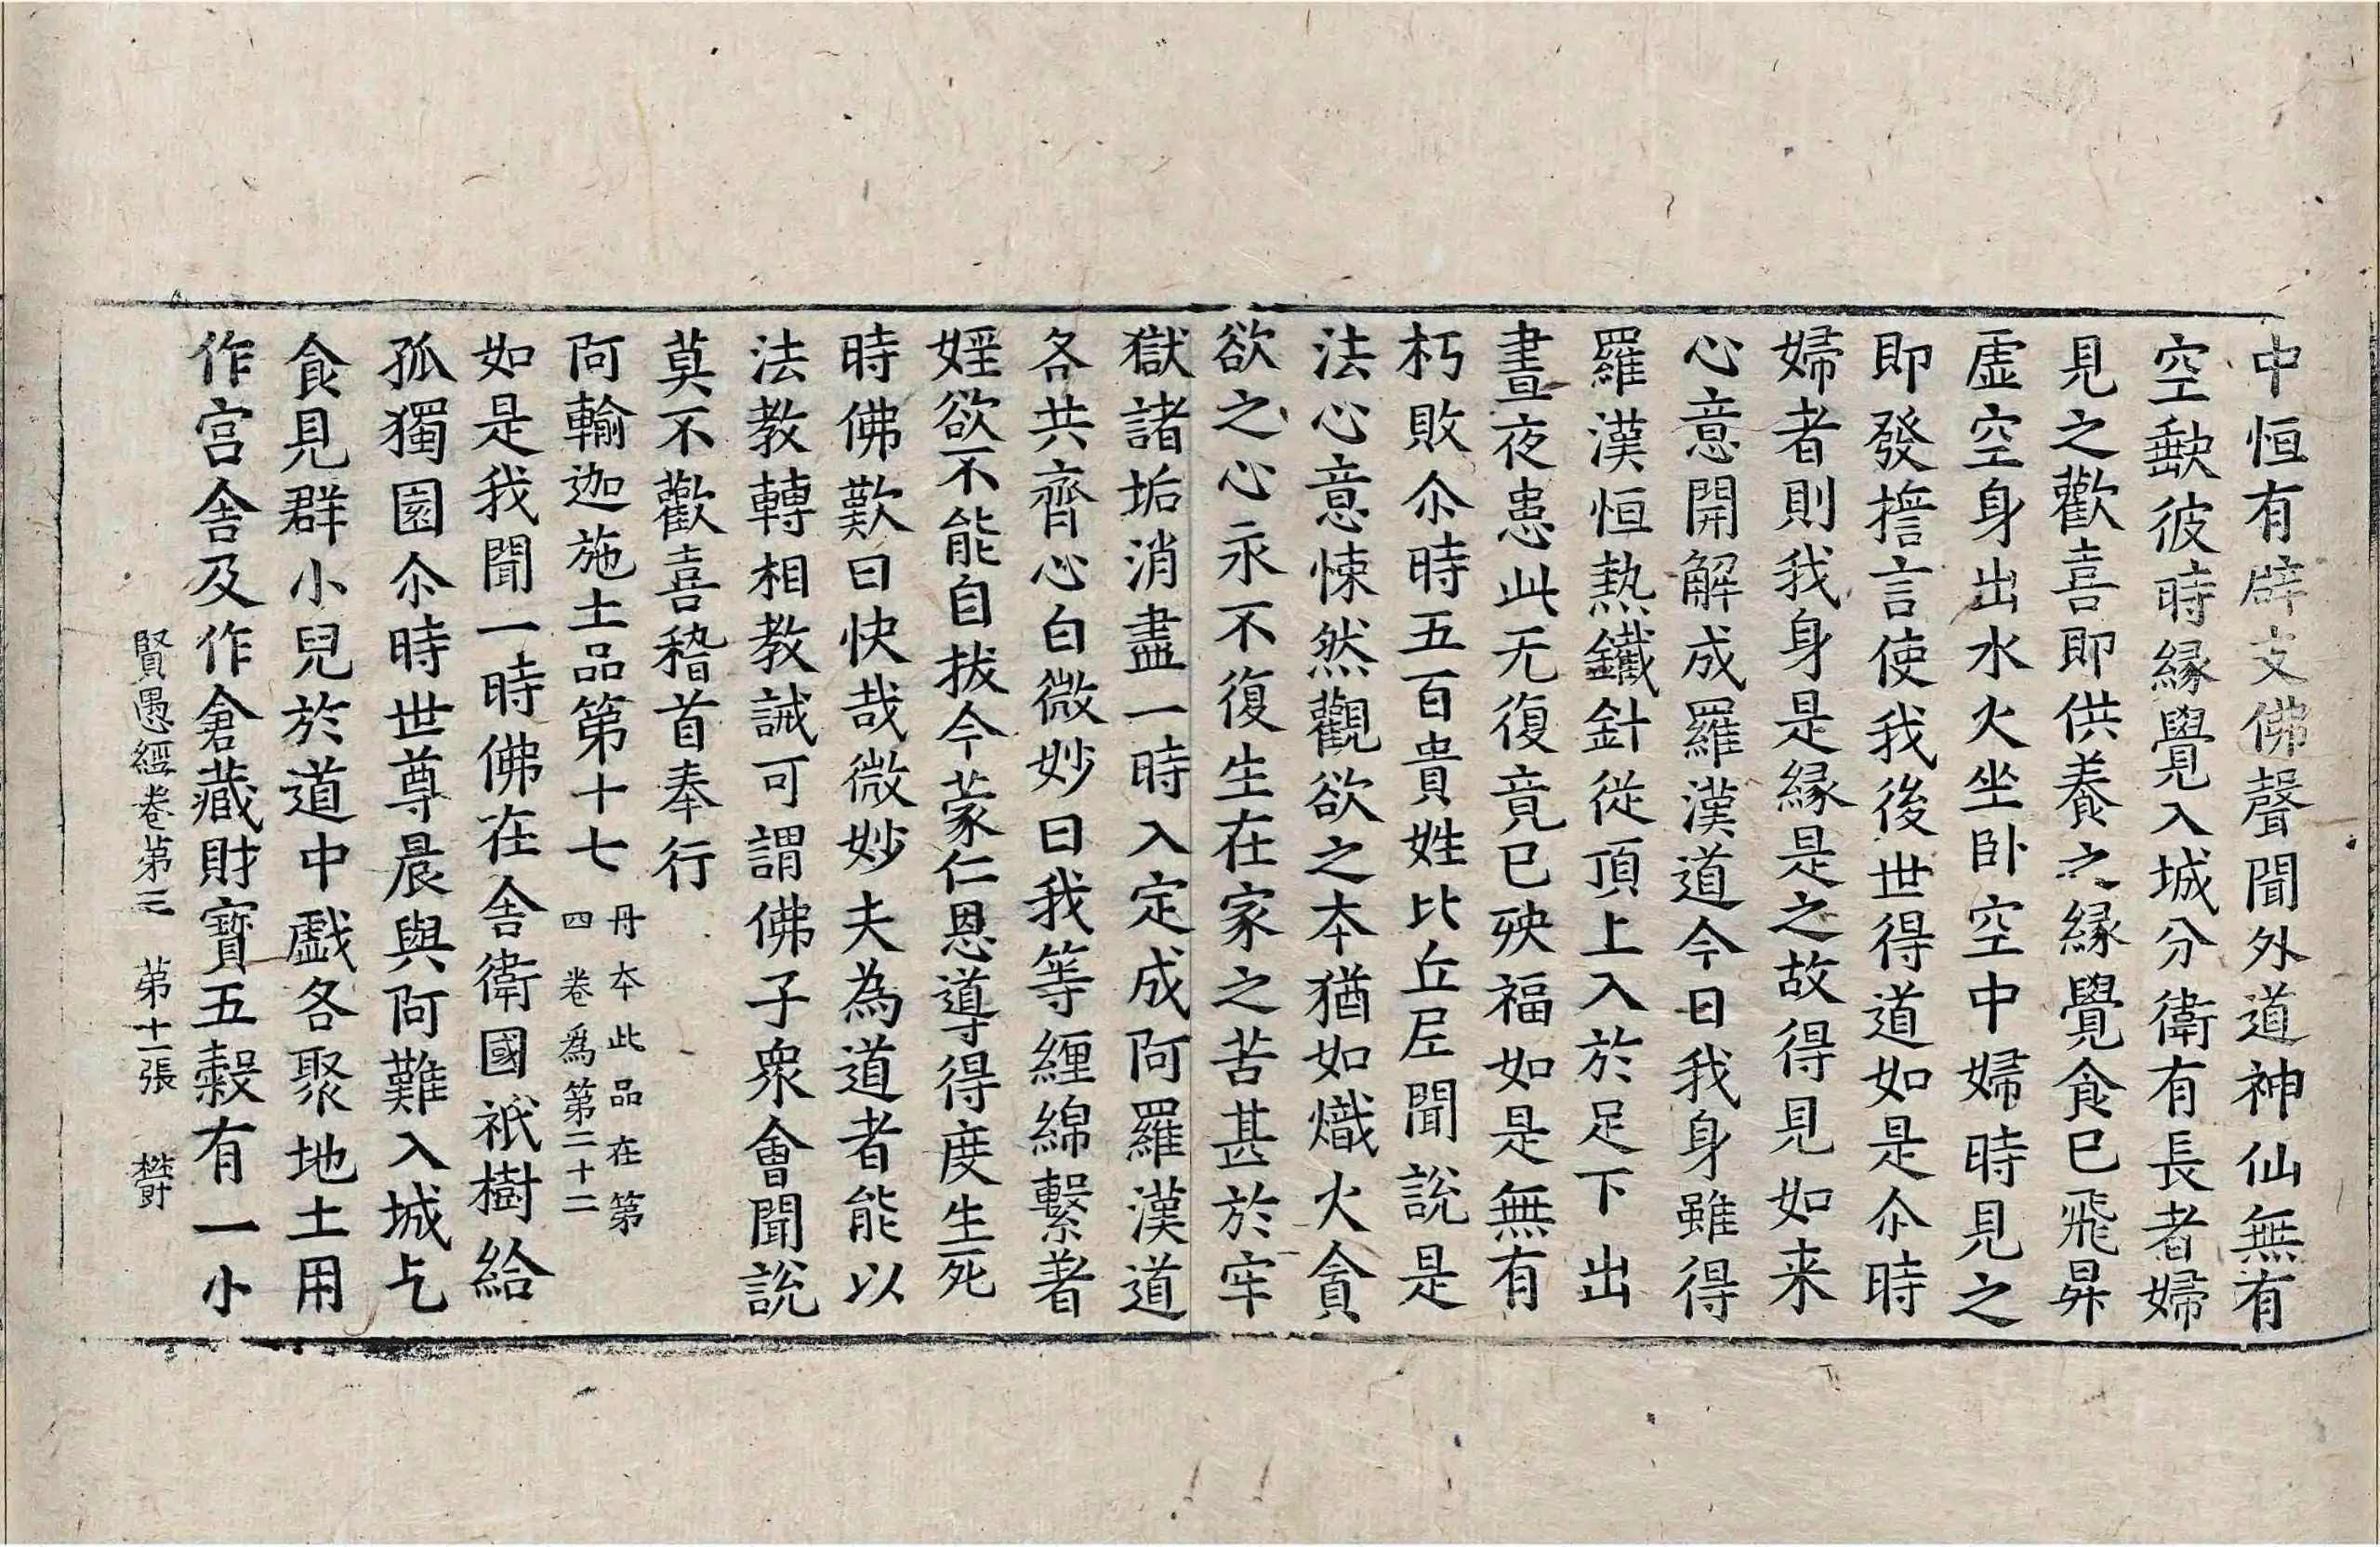 中恒有辟支佛聲聞外道神仙無有
空缺彼時緣覺入城分衛有長者婦
見之歡喜即供養之緣覺食已飛昇
虛空身出水火坐卧空中婦時見之
即發擔言使我後世得道如是尒時
婦者則我身是緣是之故得見如来
心意開解成羅漢道今日我身雖得
羅漢恒熱鐵針從頂上入於足下出
晝夜患此无復竟已殃福如是無有
朽敗尒時五百貴姓比丘尼聞說是
法心意悚然觀欲之本猶如熾火貪
欲之心永不復生在家之苦甚於牢
獄諸垢消盡一時入定成阿羅漢道
各共齊心白微妙曰我等纏綿繫著
婬欲不能自拔今蒙仁恩導得度生死
時佛歎曰快哉微妙夫為道者能以
法教轉相教誡可謂佛子衆會聞說
莫不歡喜稽首奉行
阿輸迦施土品第十七
丹本此品在第
四卷爲第二十二
如是我聞一時佛在舍衛國祇樹給
孤獨園尒時世尊晨與阿難入城乞
食見群小兒於道中戲各聚地土用
作宫舍及作倉藏財寶五穀有一小
賢愚經卷第三 第十二張 欝